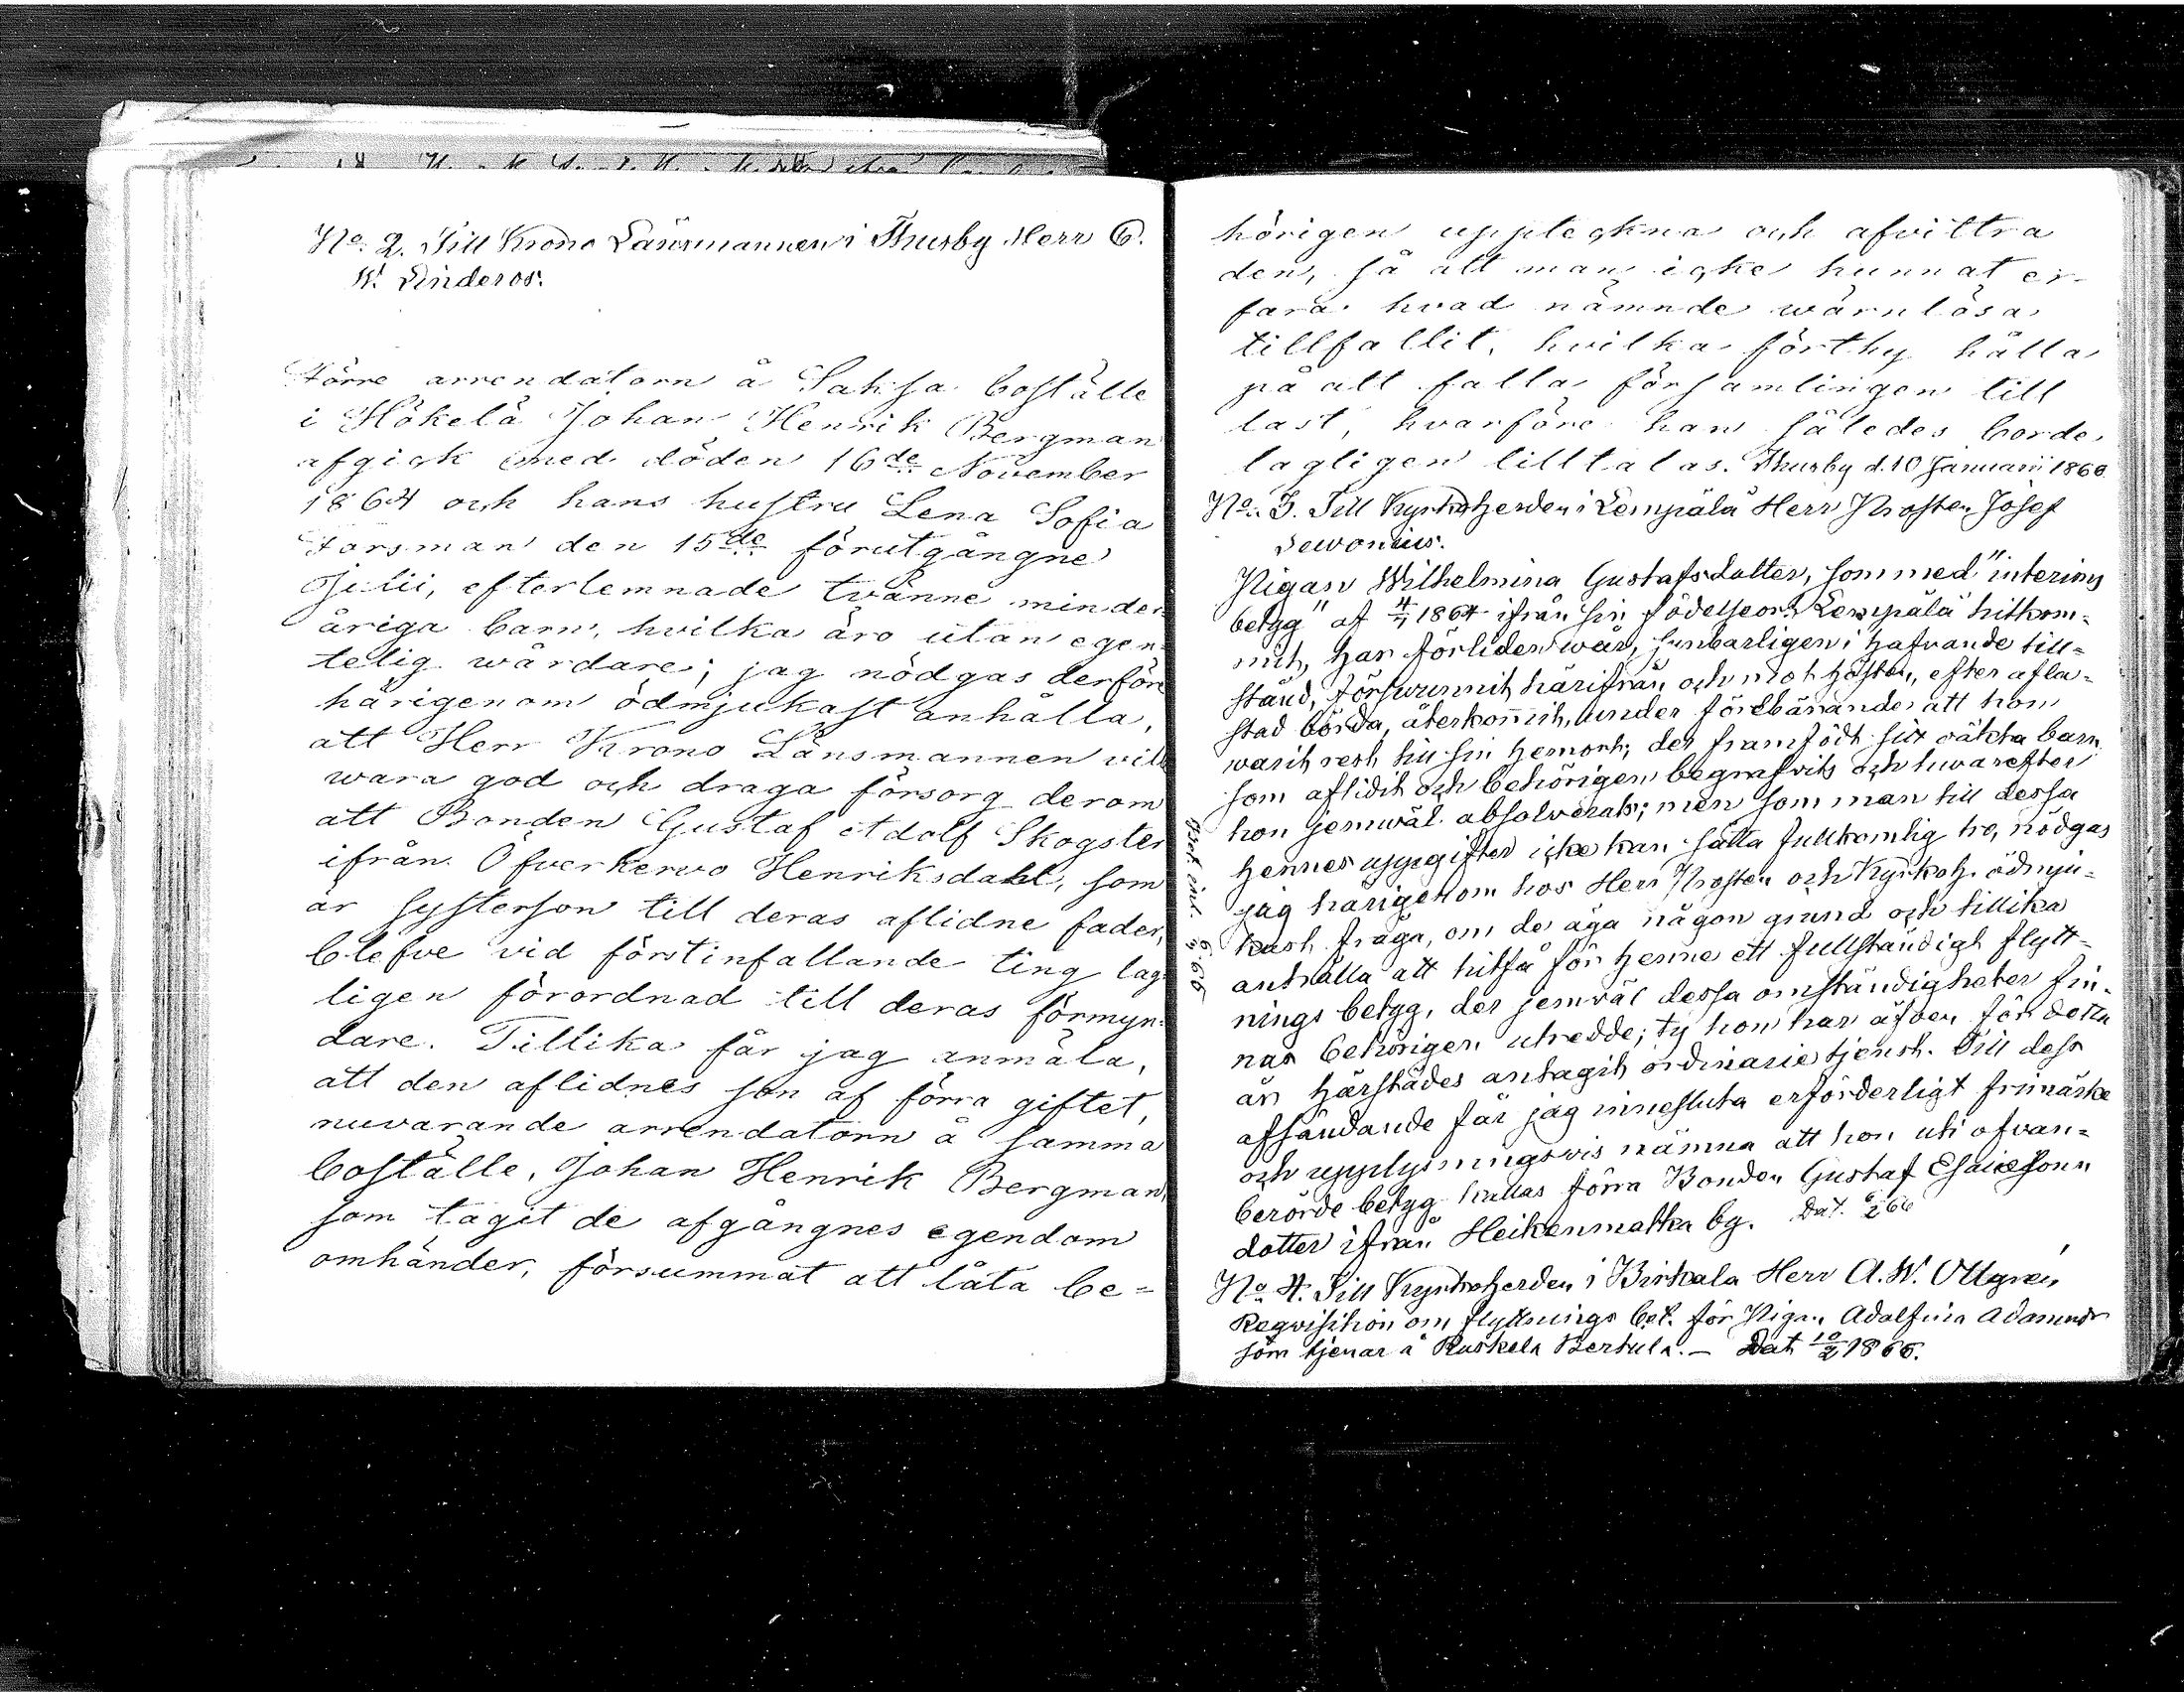 No. 2. Till Krono Länsmannen i Thusby Herr C.
W. Linderos.
Förre arrendatorn å Saksa boställe
i Hökelä Johan Henrik Bergman
afgick med döden 16de November
1864 och hans hustru Lena Sofia
Forsman den 15de förutgångne
Julii, efterlemnade tvänne minder-
åriga barn, hvilka äro utan egen-
telig wårdare; jag nödgas derföre
härigenom ödmjukast anhålla,
att Herr Krono Länsmannen ville
wara god och draga försorg derom
att Bonden Gustaf Adolf Skogster
ifrån Öfverkervo Henriksdahl, som
är systerson till deras aflidne fader,
blefve vid förstinfallande ting lag-
ligen förordnad till deras förmyn-
dare. Tillika får jag anmäla,
att den aflidnes son af förra giftet,
nuvarande arrendatorn å samma
boställe, Johan Henrik Bergman,
som tagit de afgångnes egendom
omhänder, försummat att låta be=
hörigen uppteckna och afvittra
den, så att man icke hunnat er-
fara hvad nämnde wärnlösa
tillfallit, hvilka förthy hålla
på att falla församlingen till
last, hvarföre han således borde
lagligen tilltalas. Thusby d. 10 Januarii 1866
No. 3. Till Kyrkoherden i Lempälä Herr Prosten Josef
Dewonius.
Pigan Wilhelmina Gustafsdotter, som med "interims
betyg" af 4/1 1864 ifrån sin födelseort Lempälä hitkom=
mit, har förliden wår, synbarligen i hafvande till=
stånd, försvunnit härifrån, och mot hösten, efter afla=
stad börda, återkommit, under förebärande att hon
warit rest till sin hemort, der framfödt sitt oäkta barn,
som aflidit och behörigen begrafvits och hwarefter
hon jemwäl absolverats; men som man till dessa
hennes uppgifter icke kan sätta fullkomlig tro, nödgas
jag härigenom hos Herr Prosten och Kyrkoh. ödmju=
kast fråga, om de äga någon grund och tillika
anhålla att hitfå för henne ett fullständigt flytt=
nings betyg, der jemväl dessa omständigheter fin-
nas behörigen utredde; ty hon har äfven för detta
år härstädes antagit ordinarie tjenst. Till dess
afsändande får jag innesluta erforderligt frimärke
och upplysningsvis nämna att hon uti ofvan=
berörde betyg kallas förra Bonden Gustaf Esaiessons
dotter ifrån Heikenmatka by. Dat. 6/2 66
Bet. ink. 6/3 66
No. 4. Till Kyrkoherden i Birkala Herr A. W. Ollgren,
Reqvisition om flyttnings bet. för Pigan Adolfina Adamsdr
som tjenar å Ruskela Bertula. — Dat 10/2 1866.